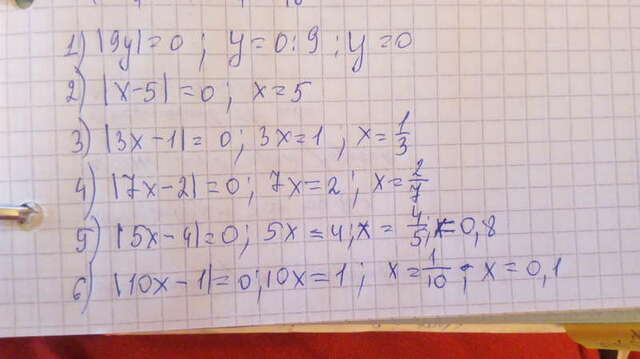 1) |9y|=0; y=0:9; y=0
2) |x-5|=0; x=5
3) |3x-1|=0; 3x=1; x=1/3
4) |7x-2|=0; 7x=2; x=2/7
5) |5x-4|=0; 5x=4; x=4/5; x=0,8
6) |10x-1|=0; 10x=1; x=1/10; x=0,1